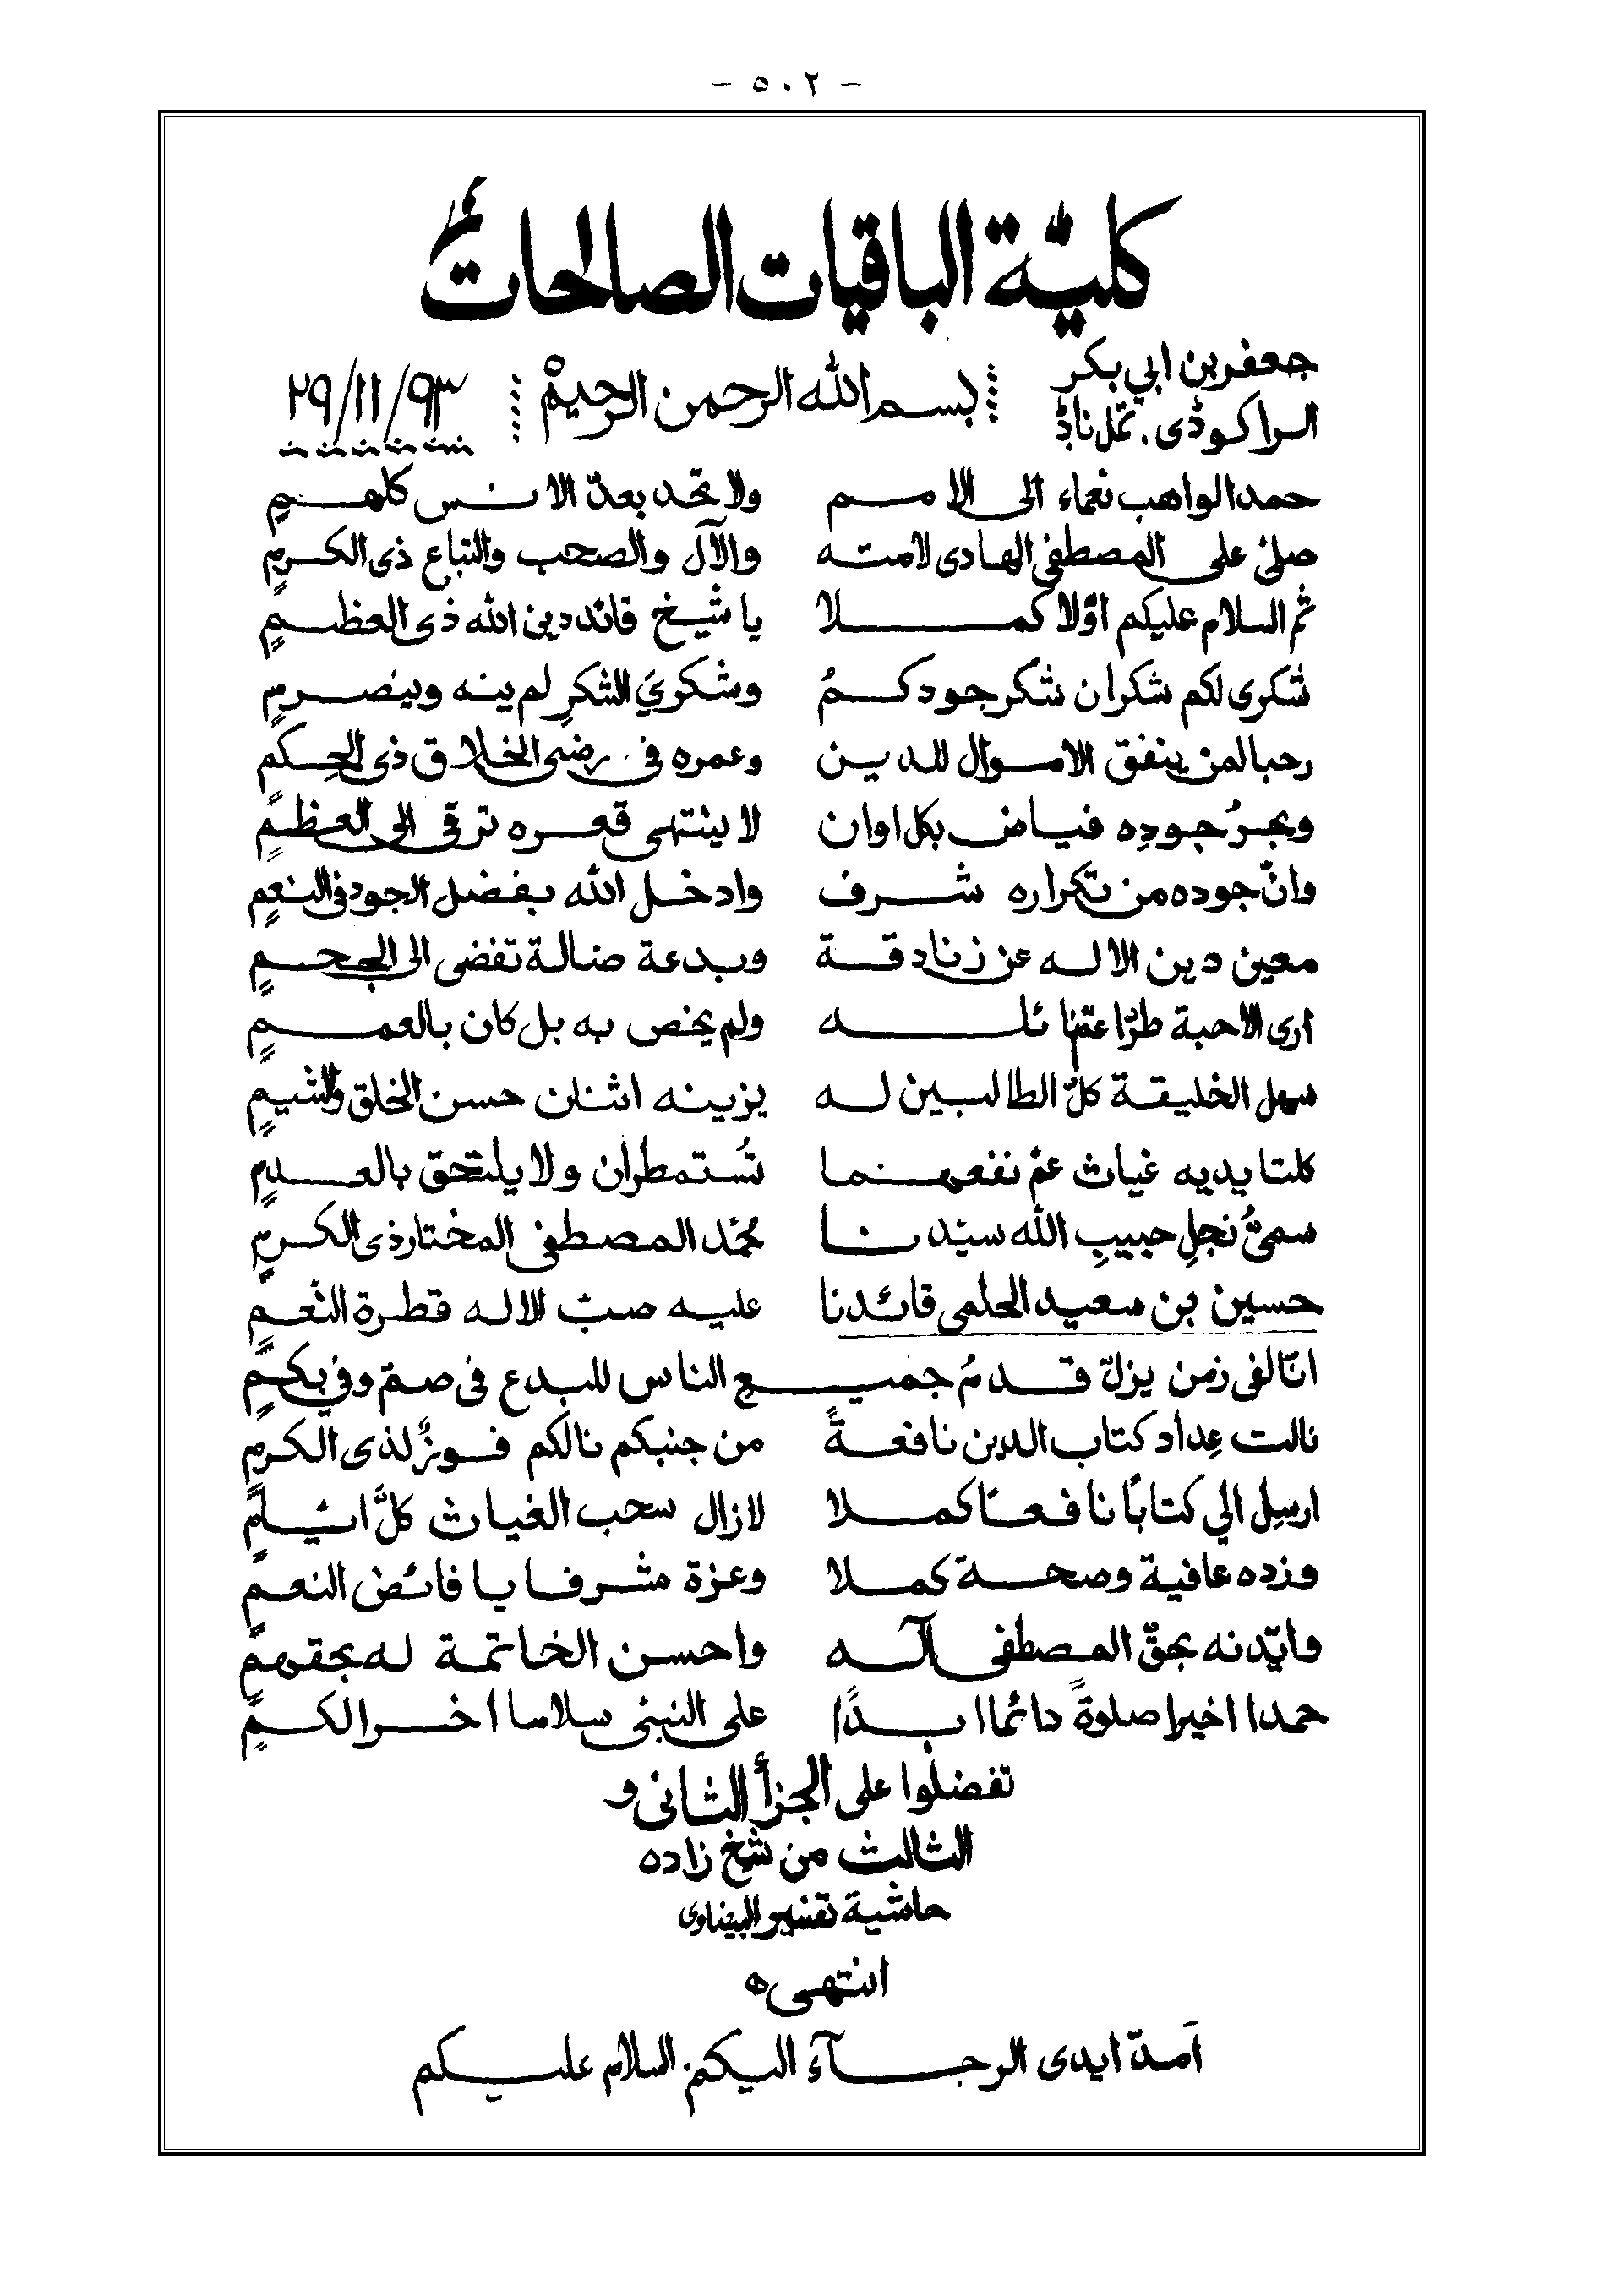 - ٥٠٢ -
كليّة الباقيات الصالحات
جعفر بن ابي بكر
الراكوڈى . تمل ناڈ
بسم الله الرحمن الرحيم
٢٩/١١/٩٣
حمدا لواهب نعماء الى الامم ولا تحد بعدّ الانس كلهم
صلى على المصطفى الهادى لامته والآل والصحب والتباع ذى الكرم
ثم السلام عليكم اوّلا كملا يا شيخ قائد دين الله ذى العظم
شكرى لكم شكران شكر جودكمُ وشكريَ الشكرِ لم ينه وينصرم
رحبا لمن ينفق الاموال للدين وعمره فى رضى الخلاق ذى الحكم
وبحرُ جودِه فياض بكل اوان لا ينتهى قعره ترقى الى العظم
وانّ جوده من تكراره شرف وادخل الله بفضل الجود فى النعم
معين دين الاله عن زنادقة وبدعة ضالة تفضى الى الجحم
ارى الاحبة طرّا عمّنا ئله ولم يخص به بل كان بالعمم
سهل الخليقة كلّ الطالبين له يزينه اثنان حسن الخلق والشيم
كلتا يديه غياث عمّ نفعهنما تُستمطران ولا يلتحق بالعدم
سمىُّ نجلِ حبيبِ الله سيّدنا محمّد المصطفى المختار ذى الكرم
حسين بن سعيد الحلمى قائدنا عليه صبّ الاله قطرة النّعم
انّا لفى زمن يزلّ قدمُ جميع الناس للبدع فى صمّ وفى بكم
نالت عِداد كتاب الدين نافعةً من جنبكم نالكم فوزٌ لذى الكرم
ارسِل الي كتابًا نافعًا كملا لازال سحب الغياث كلَّ
وزده عافية وصحة كملا وعزة مشرفا يا فائض النعم
وايّدنه بحقّ المصطفى آله واحسن الخاتمة له بحقهم
حمدا اخيرا صلوةً دائما ابدًا على النبى سلاما اخرا لكم
تفضلوا على الجزأ الثانى و
الثالث من شيخ زاده
حاشية تفسير البيضاوى
انتهى ه
اَمدّ ايدى الرجآء اليكم. السلام عليكم